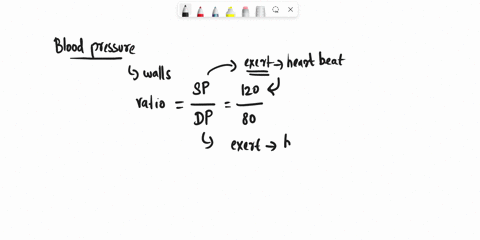 Blood pressure
↳ walls
exert → heart beat
ratio = SP/DP = 120/80
↳ exert → h